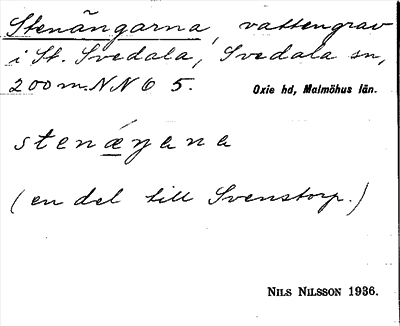 Stenängarna, vattengrav
i St. Svedala, Svedala sn,
200 m NNO 5. Oxie hd, Malmöhus län.
stenæŋana
(en del till Svenstorp.)
NILS NILSSON 1936.